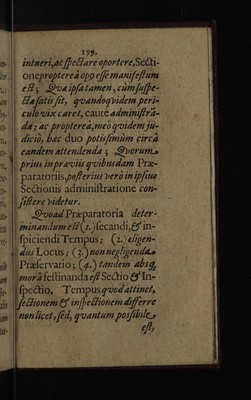 199.
intueri, ac spectare oportere, Secti-
one propterea opꝰ esse manifestum
est; Quæ ipsa tamen, cùm suspe-
cta satis sit, qvandoqvidem peri-
culo vix caret, cautè administrã-
da; ac propterea, meô qvidem ju-
dicio, hæc duo potissimùm circà
eandem attendenda; Qvorum
prius in præviis qvibusdam Præ-
paratoriis, posterius verò in ipsius
Sectionis administratione con-
sistere videtur.
Qvoad Præparatoria deter-
minandum est (1.) secandi, & in-
spiciendi Tempus; (2.) eligen-
dus Locus; (3.) non negligenda
Præservatio; (4.) tandem absq́
morâ festinanda est Sectio & In-
spectio. Tempus qvod attinet,
sectionem & inspectionem differre
non licet, sed, qvantum possibile
est,